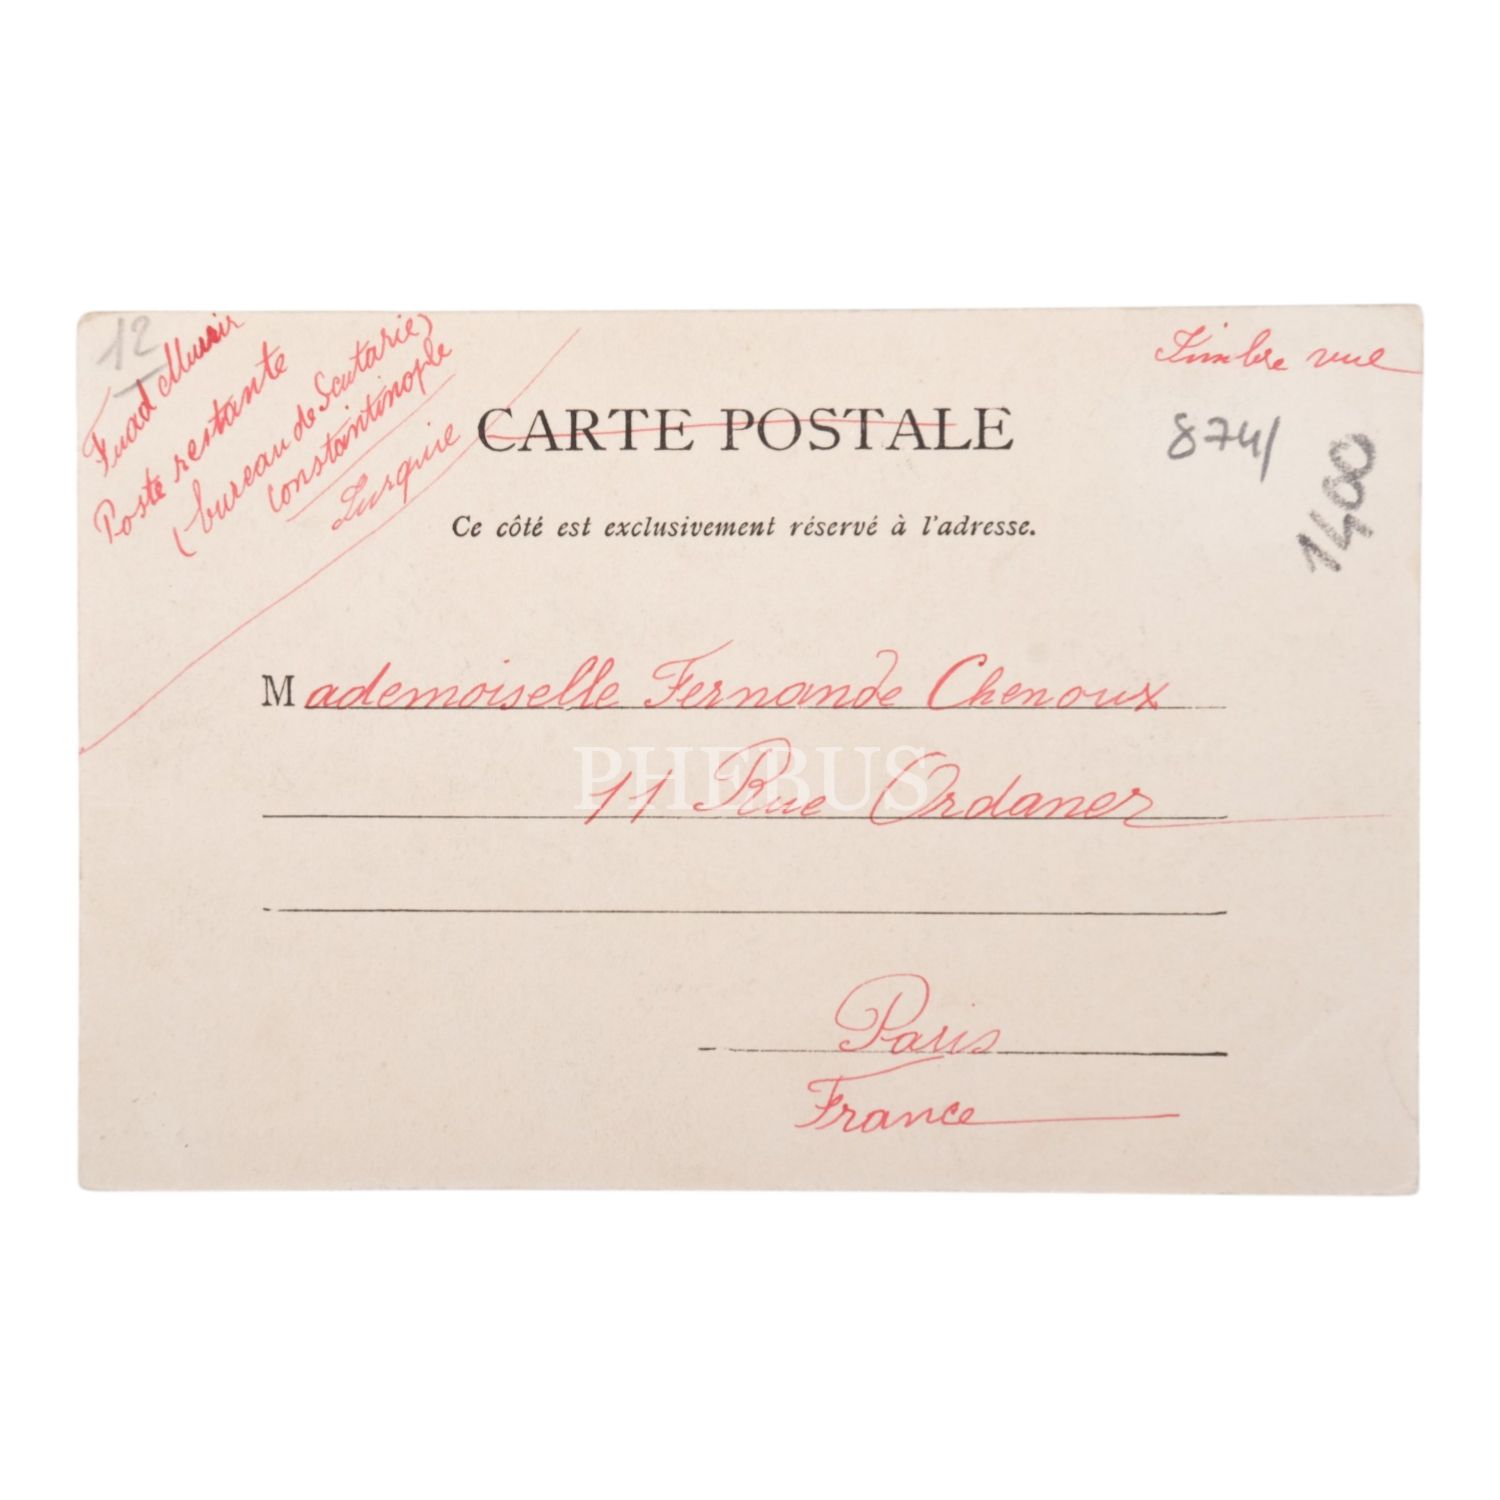 12
Fuad Munir
Poste restante
(bureau de Scutarie)
Constantinople
Turquie
Timbre vue
CARTE POSTALE
874/
1400
Ce côté est exclusivement réservé à l'adresse.
Mademoiselle Fernande Chenoux
PHEBUS
11 Rue Ordaner
Paris
France